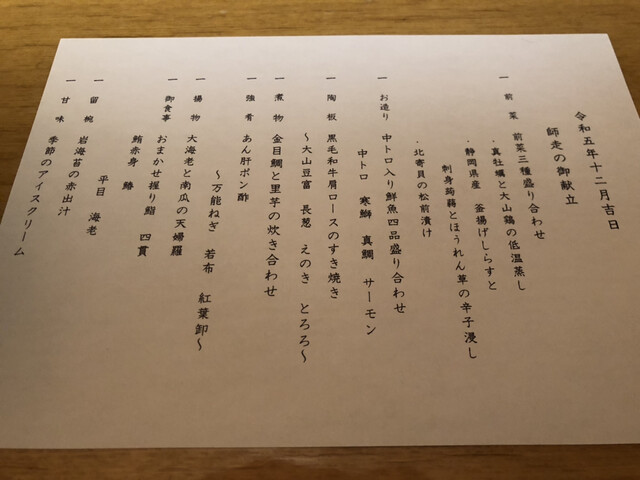 令和五年十二月吉日
師走の御献立
一 前菜 前菜三種盛り合わせ
・真牡蠣と大山鶏の低温蒸し
・静岡県産 釜揚げしらすと
刺身蒟蒻とほうれん草の辛子浸し
・北寄貝の松前漬け
一 お造り 中トロ入り鮮魚四品盛り合わせ
中トロ 寒鰤 真鯛 サーモン
一 陶板 黒毛和牛肩ロースのすき焼き
〜大山豆富 長葱 えのき とろろ〜
一 煮物 金目鯛と里芋の炊き合わせ
一 強肴 あん肝ポン酢
〜万能ねぎ 若布 紅葉卸〜
一 揚物 大海老と南瓜の天婦羅
一 御食事 おまかせ握り鮨 四貫
鮪赤身 鰆 平目 海老
一 留椀 岩海苔の赤出汁
一 甘味 季節のアイスクリーム